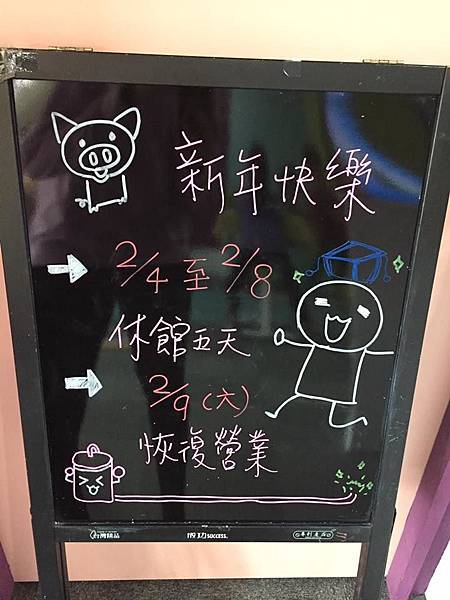 新年快樂
2/4 至 2/8
休館五天
2/9 (六)
恢復營業
台灣精品 成功 success. 專利產品